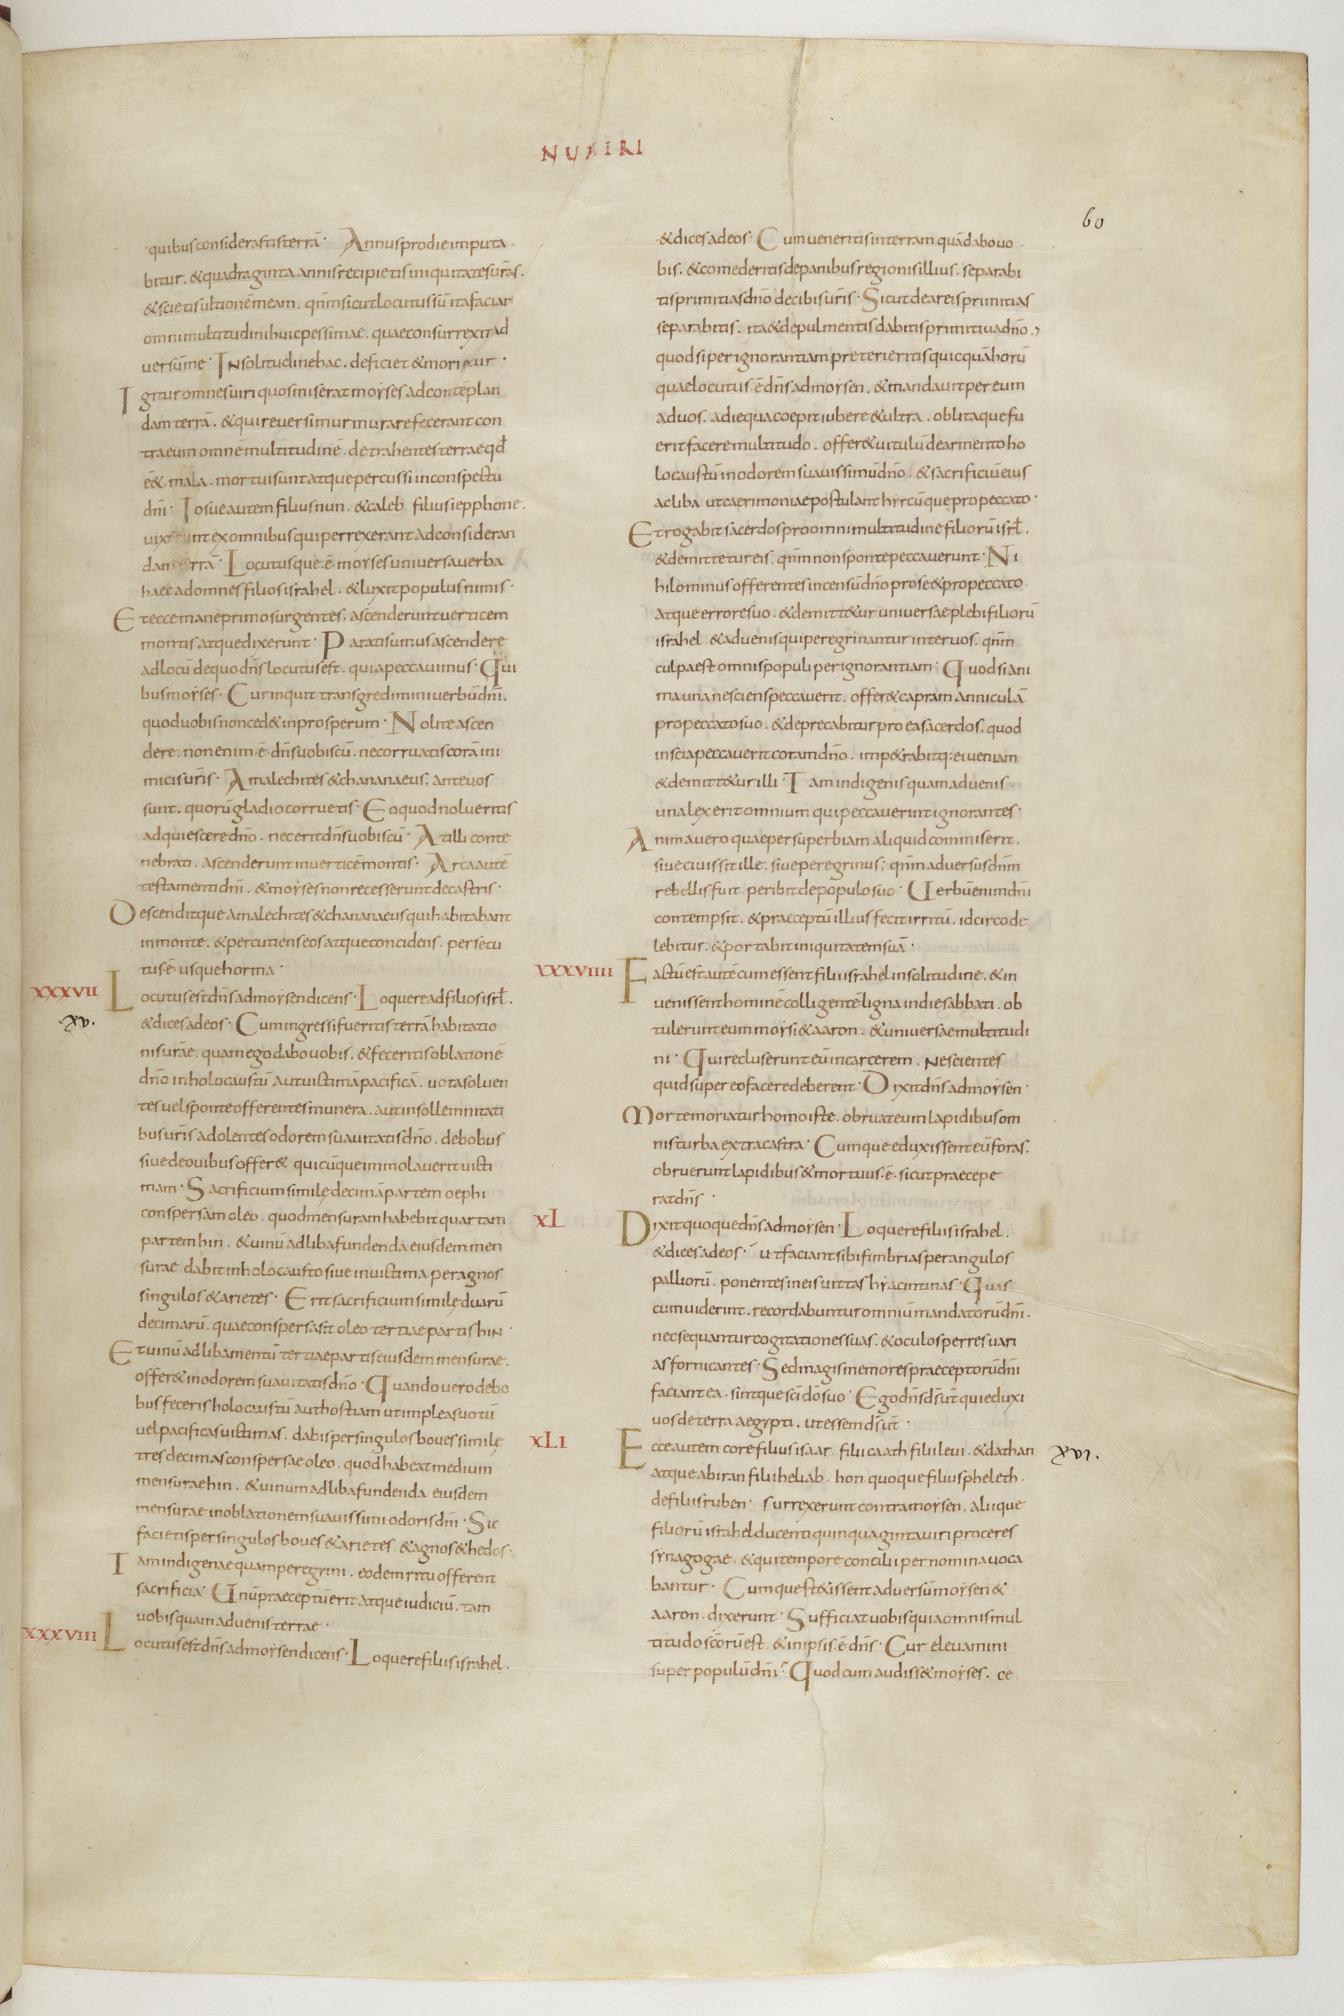 NUMERI
60
quibus considerastis terrā · Annus pro die imputa
bitur · & quadraginta annis recipietis iniquitates urās ·
& scietis ultionē meam · qnm̄ sicut locutus sū ita faciam
omni multitudini huic pessimae · quae consurrexit ad
versū me · In solitudine hac · deficiet & morietur ·
Igitur omnes viri quos miserat moyses ad contēplan
dam terrā · & qui reversi murmurare fecerant con
tra eum omnē multitudinē · detrahentes terrae qđ
ēē mala · mortui sunt atque percussi in conspectu
dn̄i · Iosue autem filius nun · & caleb filius iepphone ·
vixerunt ex omnibus qui perrexerant ad consideran
dam terrā · Locutusque · ē · moyses universa verba
haec ad omnes filios israhel · & luxit populus nimis ·
Et ecce mane primo surgentes · ascenderunt verticem
montis atque dixerunt · Parati sumus ascendere
ad locū de quo dn̄s locutus est · quia peccavimus · Qui
bus moyses · Cur inquit transgredimini verbū dn̄i ·
quod vobis non ced& in prosperum · Nolite ascen
dere · non enim · ē · dn̄s vobiscū · ne corruatis corā ini
micis uris · Amalechites & chananaeus · ante vos
sunt · quorū gladio corruetis · Eo quod nolueritis
adquiescere dn̄o · nec erit dn̄s vobiscū · At illi conte
nebrati · ascenderunt in verticē montis · Arca autē
testamenti dn̄i · & moyses non recesserunt de castris ·
Descenditque amalechites & chananaeus qui habitabant
in monte · & percutiens eos atque concidens · persecu
tus · ē · usque horma ·
XXXVII Locutus est dn̄s ad moysen dicens · Loquere ad filios isrł ·
xv. & dices ad eos · Cum ingressi fueritis terrā habitatio
nis urae · quam ego dabo vobis · & feceritis oblationē
dn̄o in holocaustū aut victimā pacificā · vota solven
tes vel sponte offerentes munera · aut in sollemnitati
bus uris adolentes odorem suavitatis dn̄o · de bobus
sive de ovibus offer& quicūque immolaverit victi
mam · Sacrificium similę decimā partem oephi
conspersam oleo · quod mensuram habebit quartam
partem hin · & vinū ad liba fundenda eiusdem men
surae dabit in holocausto sive in victima per agnos
singulos & arietes · Erit sacrificium similę duarū
decimarū · quae conspersa sit oleo tertiae partis hin ·
Et vinū ad libamentū tertiae partis eiusdem mensurae ·
offer& in odorem suavitatis dn̄o · Quando vero de bo
bus feceris holocaustū aut hostiam ut impleas votū
vel pacificas victimas · dabis per singulos boves similę
tres decimas conspersae oleo · quod habeat medium
mensurae hin · & vinum ad liba fundenda eiusdem
mensurae in oblationem suavissimi odoris dn̄i · Sic
facietis per singulos boves & arietes · & agnos & hedos ·
Tam indigenae quam peregrini · eodem ritu offerent
sacrificia · Unū praeceptū erit atque iudiciū · tam
vobis quam advenis terrae ·
XXXVIII Locutus est dn̄s ad moysen dicens · Loquere filiis israhel ·
& dices ad eos · Cum veneritis in terram quā dabo vo
bis · & comederitis de panibus regionis illius · separabi
tis primitias dn̄o de cibis uris · Sicut de areis primitias
separabitis · ita & de pulmentis dabitis primitiva dn̄o ·
quod si per ignorantiam preterieritis quicquā horū
quae locutus · ē dn̄s ad moysen · & mandavit per eum
ad vos · a die qua coepit iubere & ultra · oblitaque fu
erit facere multitudo · offer& vitulū de armento ho
locaustū in odorem suavissimū dn̄o · & sacrificiū eius
ac liba ut caerimoniae postulant hyrcūque pro peccato ·
Et rogabit sacerdos pro omni multitudine filiorū isrł ·
& demittetur eis · qnm̄ non sponte peccaverunt · Ni
hilominus offerentes incensū dn̄o pro se & pro peccato
atque errore suo · & demitt&ur universae plebi filiorū
israhel · & advenis qui peregrinantur inter vos · qnm̄
culpa est omnis populi per ignorantiam · Quod si ani
ma una nesciens peccaverit · offer& capram anniculā
pro peccato suo · & deprecabitur pro ea sacerdos · quod
inscia peccaverit coram dn̄o · imp&rabitq: ei veniam
& demitt&ur illi · Tam indigenis quam advenis ·
una lex erit omnium qui peccaverint ignorantes ·
Anima vero quae per superbiam aliquid commiserit ·
sive civis sit ille · sive peregrinus · qnm̄ adversus dn̄m
rebellis fuit peribit de populo suo · Verbū enim dn̄i
contempsit · & praeceptū illius fecit irritū · idcirco de
lebitur · & portabit iniquitatem suā ·
XXXVIIII Factū est autē cum essent filii israhel in solitudine · & in
venissent hominē colligentē ligna in die sabbati · ob
tulerunt eum moysi & aaron · & universae multitudi
ni · Qui recluserunt eū in carcerem · nescientes
quid super eo facere deberent · Dixit dn̄s ad moysen ·
Morte moriatur homo iste · obruat eum lapidibus om
nis turba extra castra · Cumque eduxissent eū foras ·
obruerunt lapidibus & mortuus · ē · sicut praecepe
rat dn̄s ·
XL Dixit quoque dn̄s ad moysen · Loquere filiis israhel ·
& dices ad eos · ut faciant sibi fimbrias per angulos
palliorū · ponentes in eis vittas hyacintinas · Quas
cum viderint · recordabuntur omniū mandatorū dn̄i ·
nec sequantur cogitationes suas · & oculos per res vari
as fornicantes · Sed magis memores praeceptorū dn̄i
faciant ea · sintque sc̄i dō suo · Ego dn̄s dś ur̄ qui eduxi
vos de terra aegypti · ut essem dś ur̄ ·
XLI Ecce autem core filius isaar · filii caath filii levi · & dathan xvi.
atque abiran filii heliab · hon quoque filius pheleth ·
de filiis ruben · surrexerunt contra moysen · aliique
filiorū israhel ducenti quinquaginta viri proceres
synagogae · & qui tempore concilii per nomina voca
bantur · Cumque st&issent adversū moysen &
aaron · dixerunt · Sufficiat vobis quia omnis mul
titudo sc̄orū est · & in ipsis · ē dn̄s · Cur elevamini
super populū dn̄i · Quod cum audiss& moyses · ce